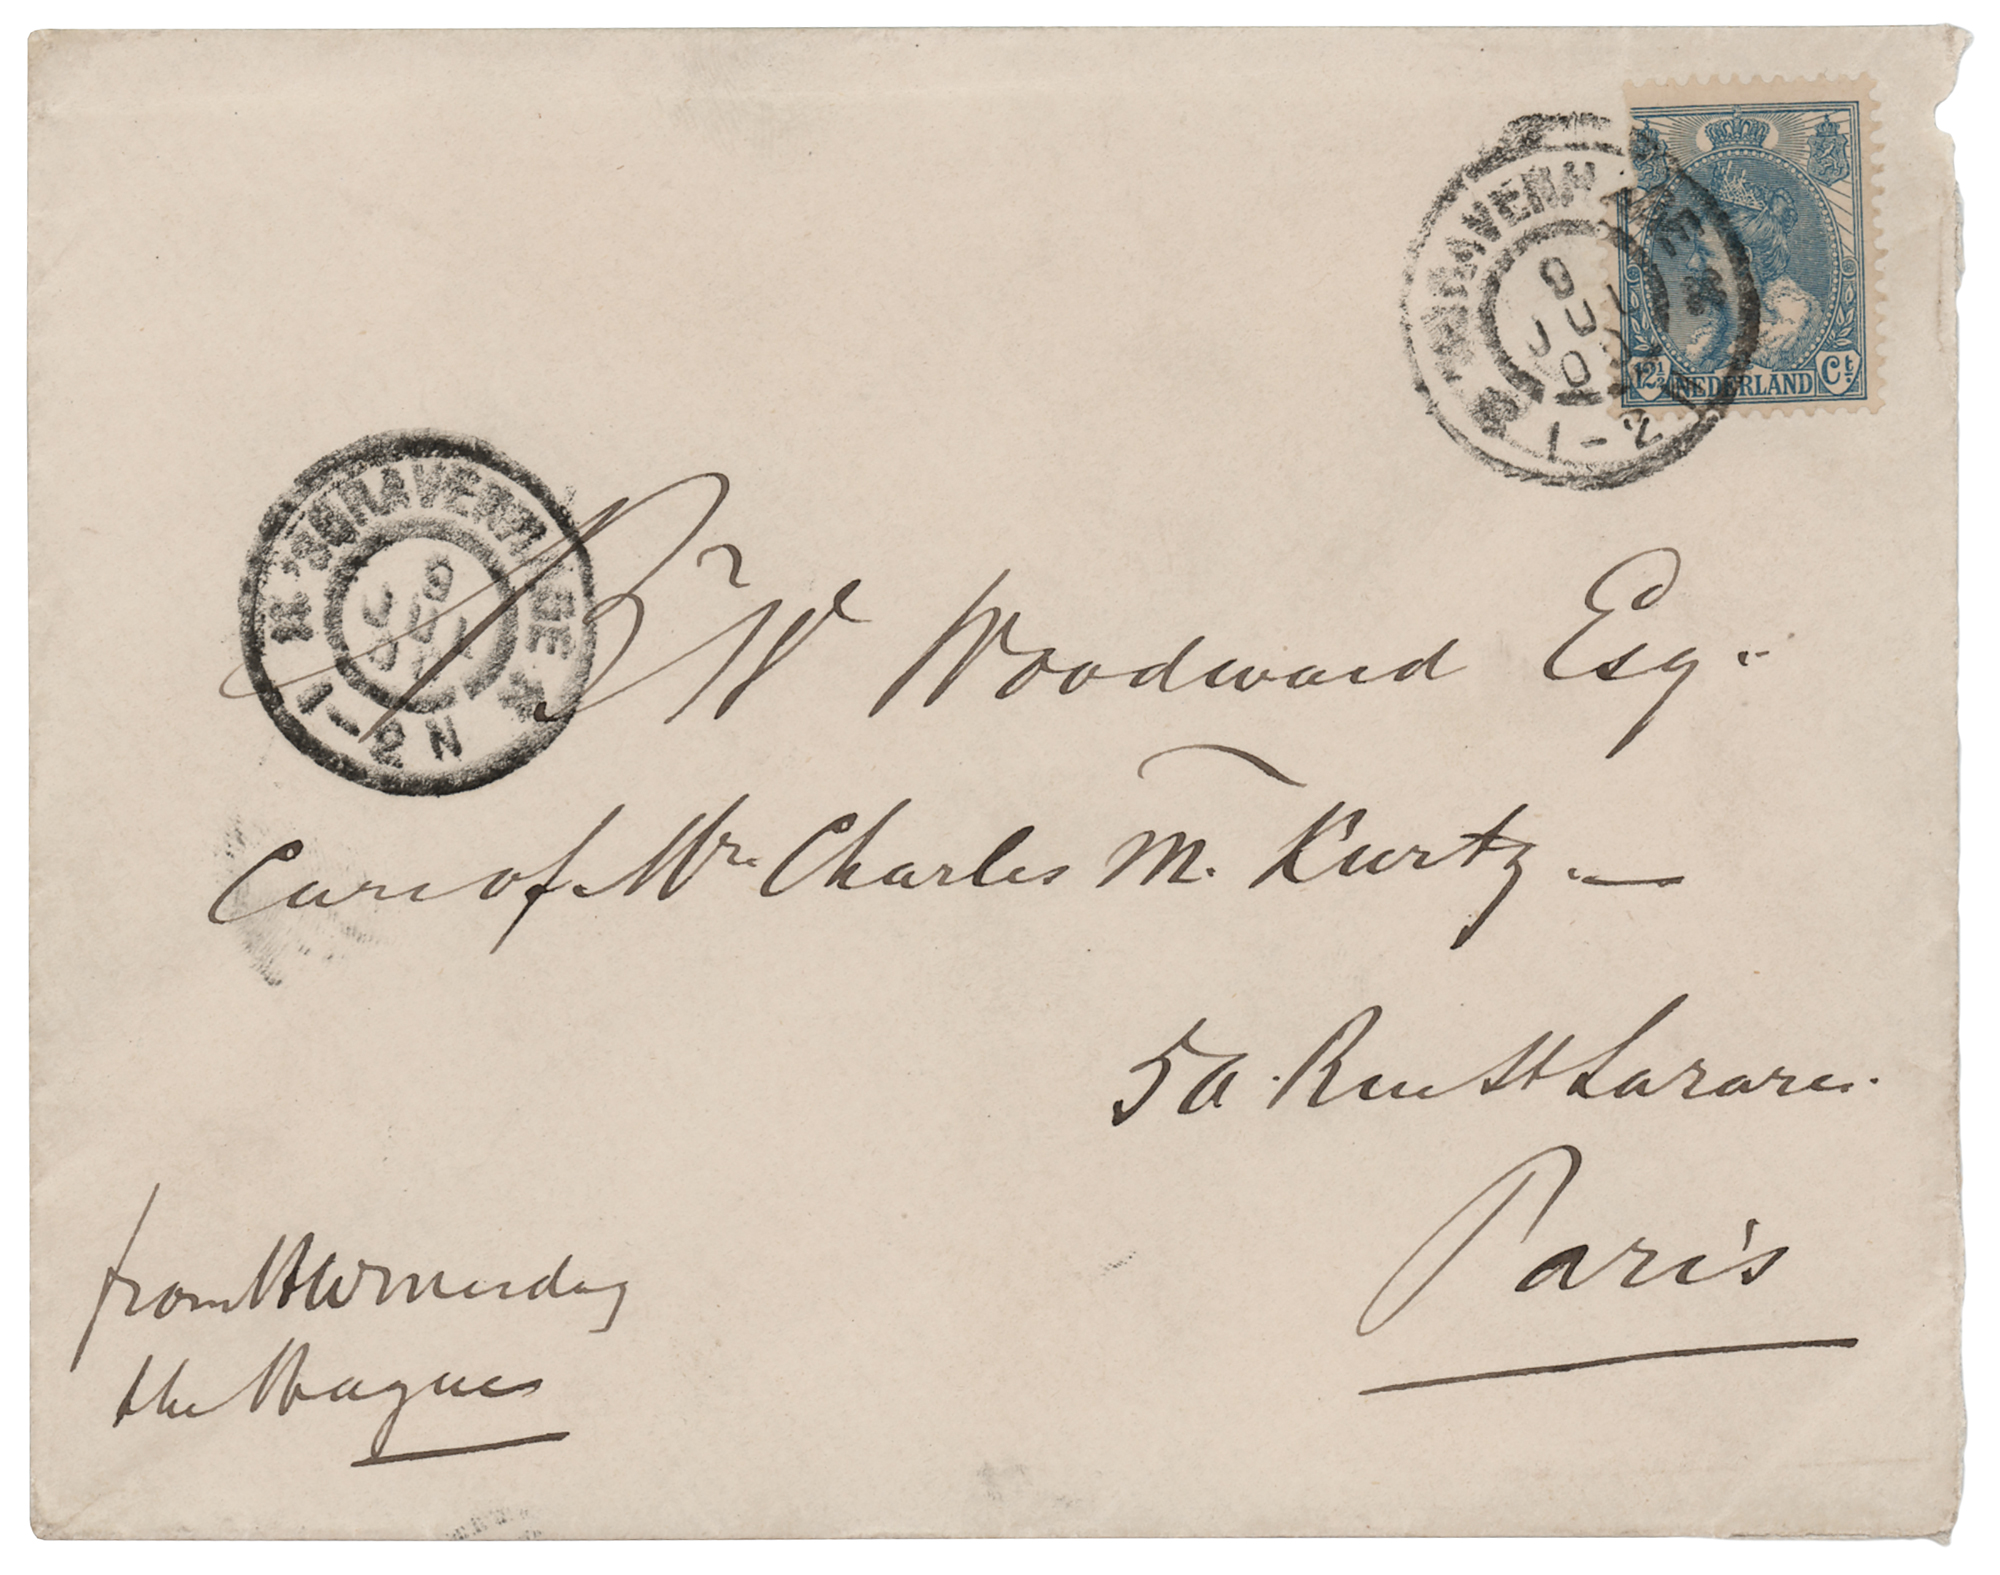 'SGRAVENHAGE
9
JUL
1-2
12½ NEDERLAND Ct.
'SGRAVENHAGE
9
JUL
1-2 N
W Woodward Esq.
Care of Mr. Charles M. Kurtz.
Rue St Lazare.
Paris
from H W Mesdag
the Hague